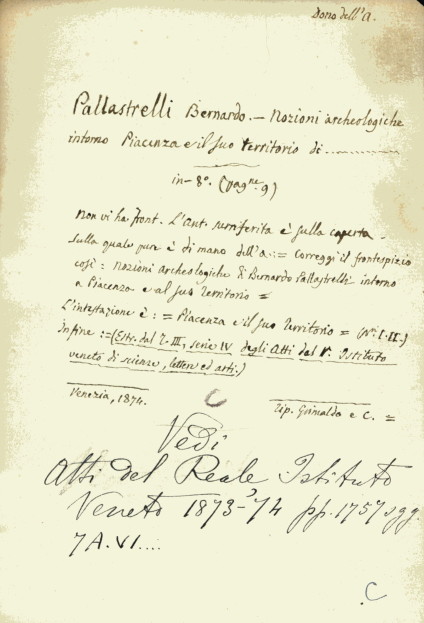 Dono dell'A.
Pallastrelli Bernardo. — Nozioni archeologiche
intorno Piacenza e il suo territorio di ...........
in-8°. (pagne 9)
Non vi ha front. L'Ant. surriferita è sulla coperta
sulla quale pure è di mano dell'a: = Correggi il frontespizio
così: Nozioni archeologiche di Bernardo Pallastrelli intorno
a Piacenza e al suo territorio =
L'intestazione è: = Piacenza e il suo territorio = (Ni. I-II.)
Infine := (Estr. dal T. III, serie IV degli Atti dal R. Istituto
veneto di scienze, lettere ed arti.)
Venezia, 1874. Tip. Grimaldo e C. =
C
Vedi
Atti del Reale Istituto
Veneto 1873-'74 pp. 1757 sgg.
7A.VI....
C